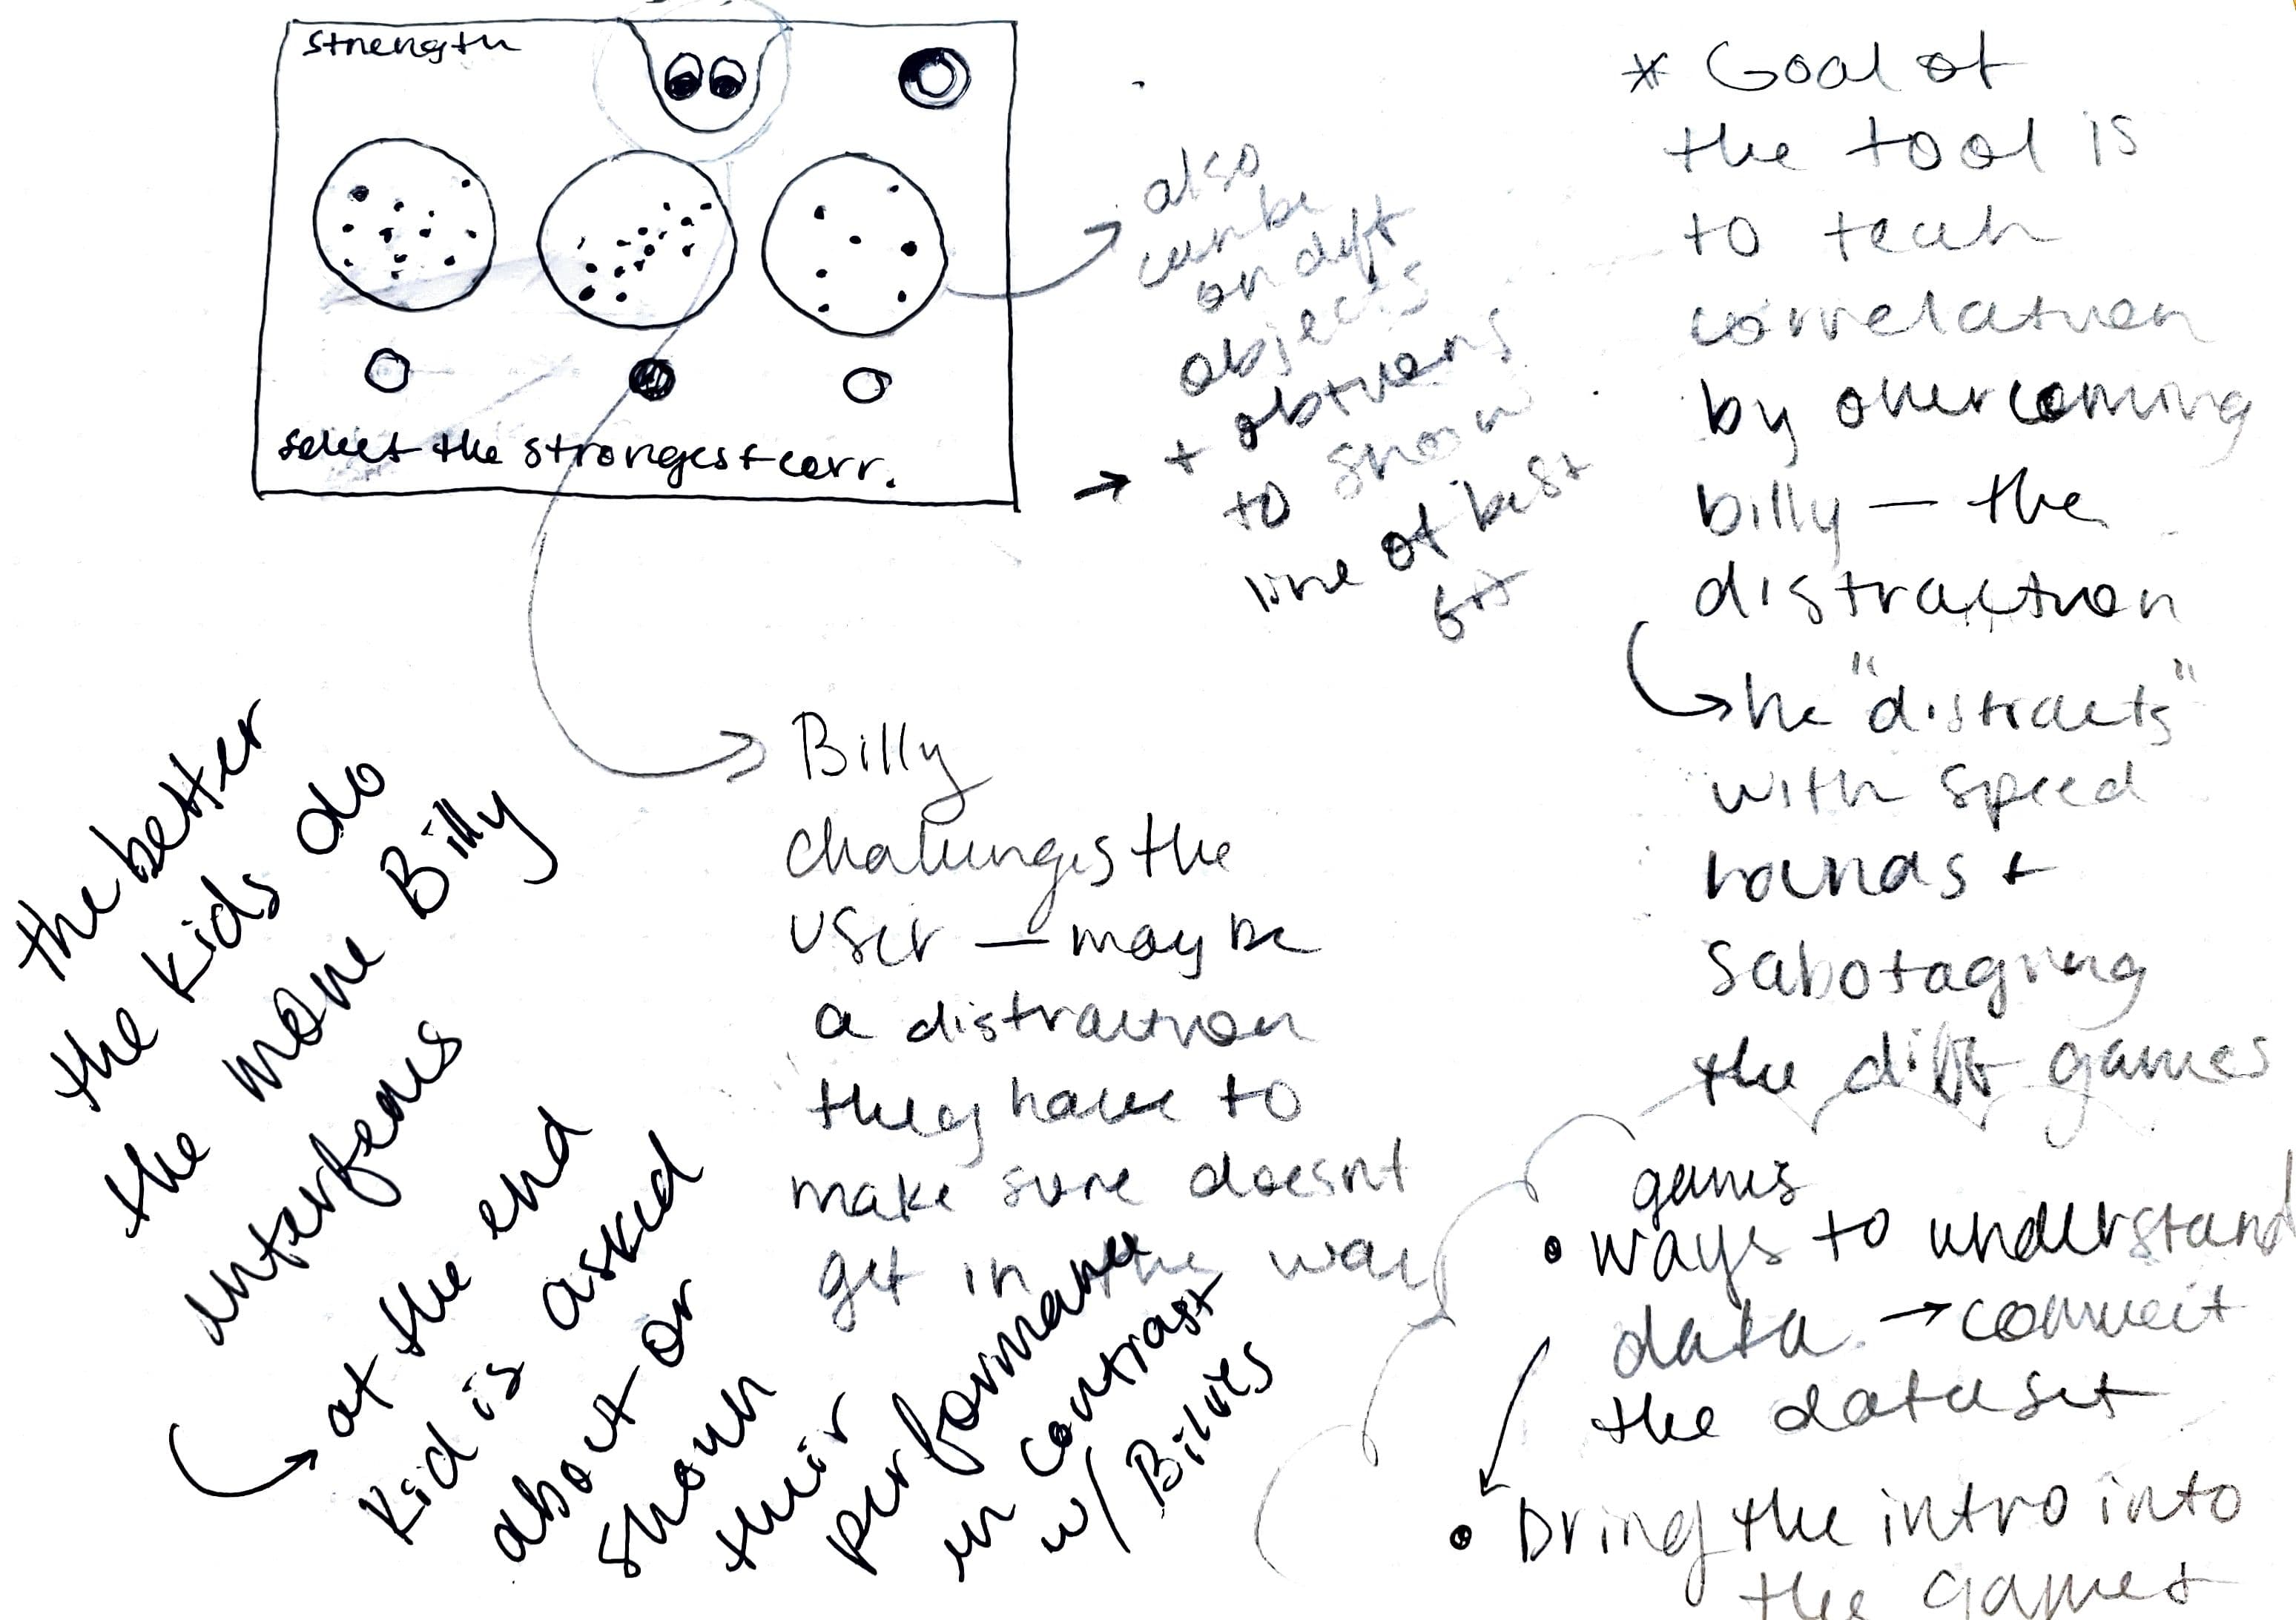 Strength
select the strongest corr.
also
can be
on diff
objects
+ obtions
to show
line of best
fit
* Goal of
the tool is
to teah
correlation
by overcoming
billy — the
distraction
he "distracts"
with speed
rounds +
sabotaging
the diff games
games
• ways to understand
data → connect
the dataset
• bring the intro into
the games
Billy
challenges the
user — may be
a distraction
they have to
make sure doesnt
get in the way
the better
the kids do
the more Billy
interferes
at the end
kid is asked
about or
shown
their
performance
in contrast
w/ Billies